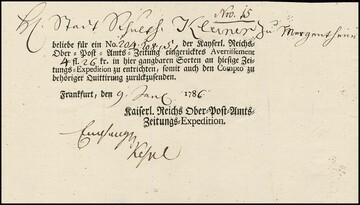 Nro. 15
H. Stadt Schulth. Kleiner zu Mergentheim
beliebe für ein No. 204. 204. 151 der Kayserl. Reichs-
Ober-Post-Amts-Zeitung eingerücktes Avertissement
4 fl. 26 kr. in hier gangbaren Sorten an hiesige Zei-
tungs-Expedition zu entrichten, somit auch den Compto zu
behöriger Quittirung zurückzusenden.
Frankfurt, den 9. Janr. 1786
Kaiserl. Reichs Ober-Post-Amts-
Zeitungs-Expedition.